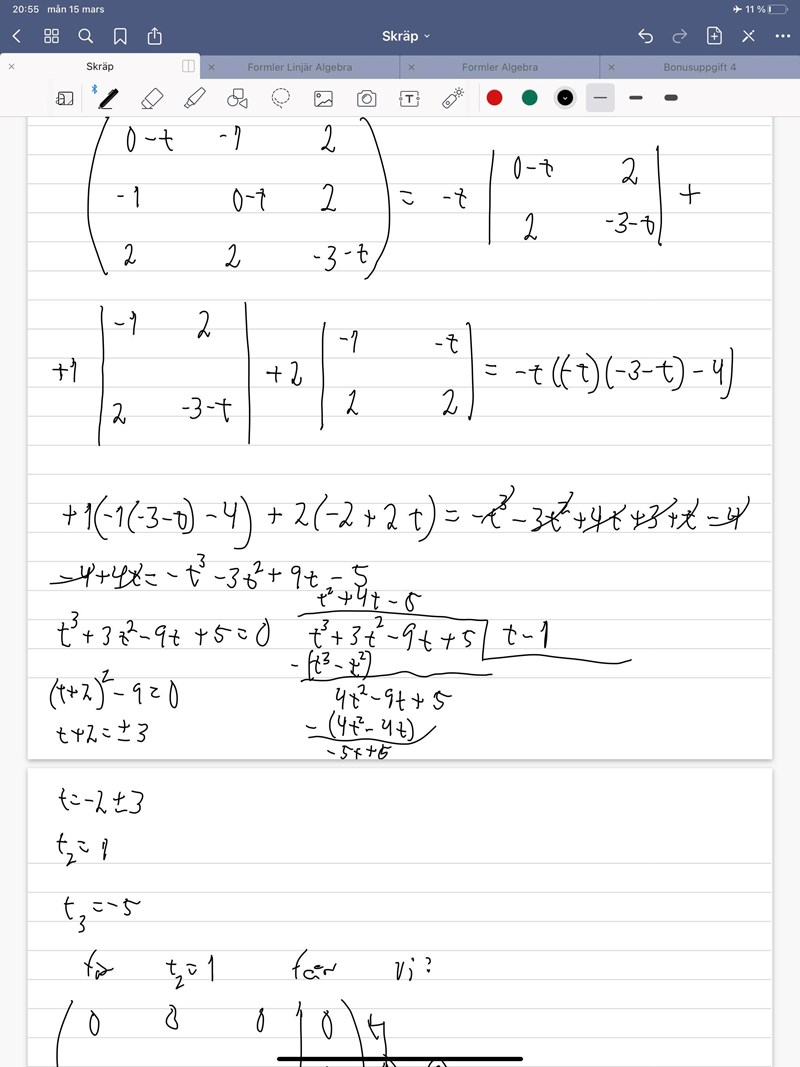 20:55 mån 15 mars
11 %
Skräp
Skräp
Formler Linjär Algebra
Formler Algebra
Bonusuppgift 4
0-t -1 2
-1 0-t 2
2 2 -3-t
= -t
0-t 2
2 -3-t
+
+1
-1 2
2 -3-t
+2
-1 -t
2 2
= -t((-t)(-3-t)-4)
+1(-1(-3-t)-4) + 2(-2+2t) = -t³-3t²+4t+3+t-4
-4+4t = -t³-3t²+9t-5
t²+4t-5
t³+3t²-9t+5=0
t³+3t²-9t+5
t-1
-(t³-t²)
(t+2)²-9=0
4t²-9t+5
t+2=±3
-(4t²-4t)
-5t+5
t=-2±3
t₂=1
t₃=-5
för t₂=1 får vi:
0 0 0 | 0